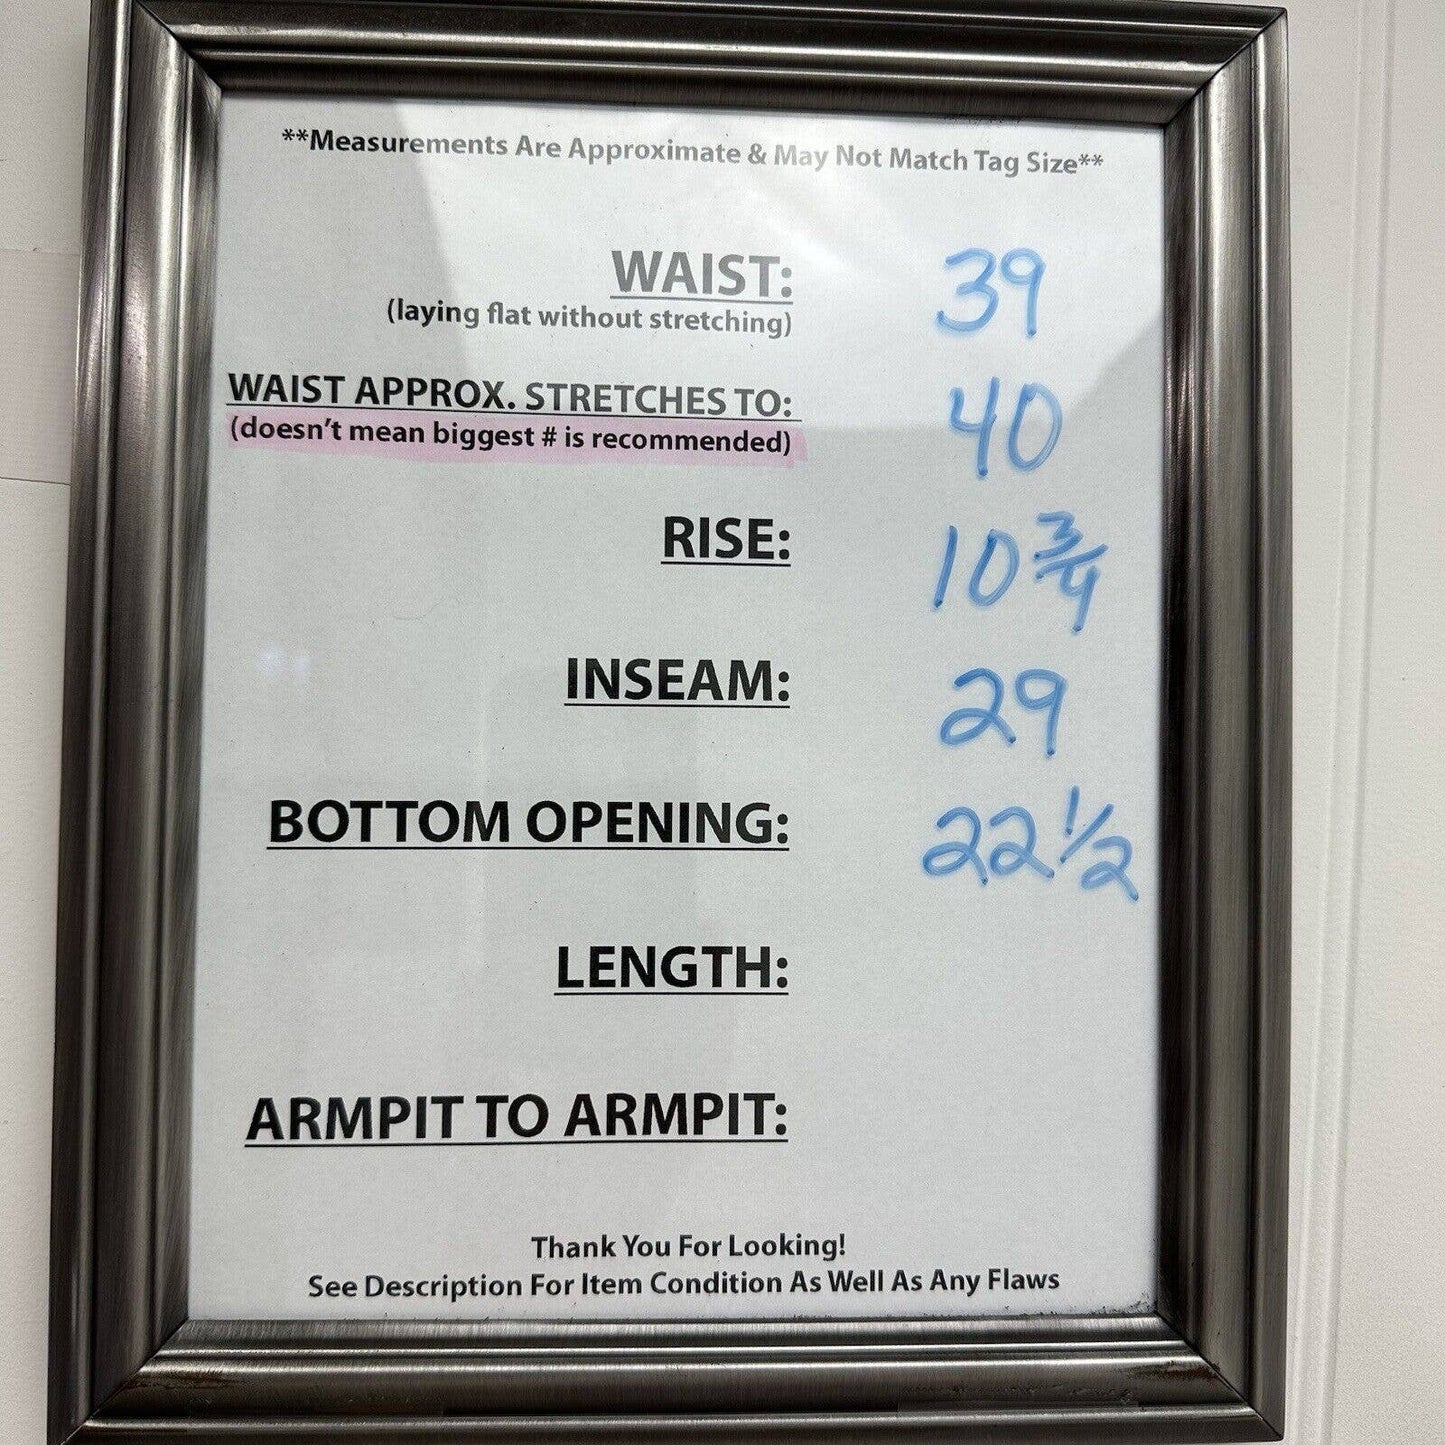 **Measurements Are Approximate & May Not Match Tag Size**
WAIST: 39
(laying flat without stretching)
WAIST APPROX. STRETCHES TO: 40
(doesn't mean biggest # is recommended)
RISE: 10 3/4
INSEAM: 29
BOTTOM OPENING: 22 1/2
LENGTH:
ARMPIT TO ARMPIT:
Thank You For Looking!
See Description For Item Condition As Well As Any Flaws